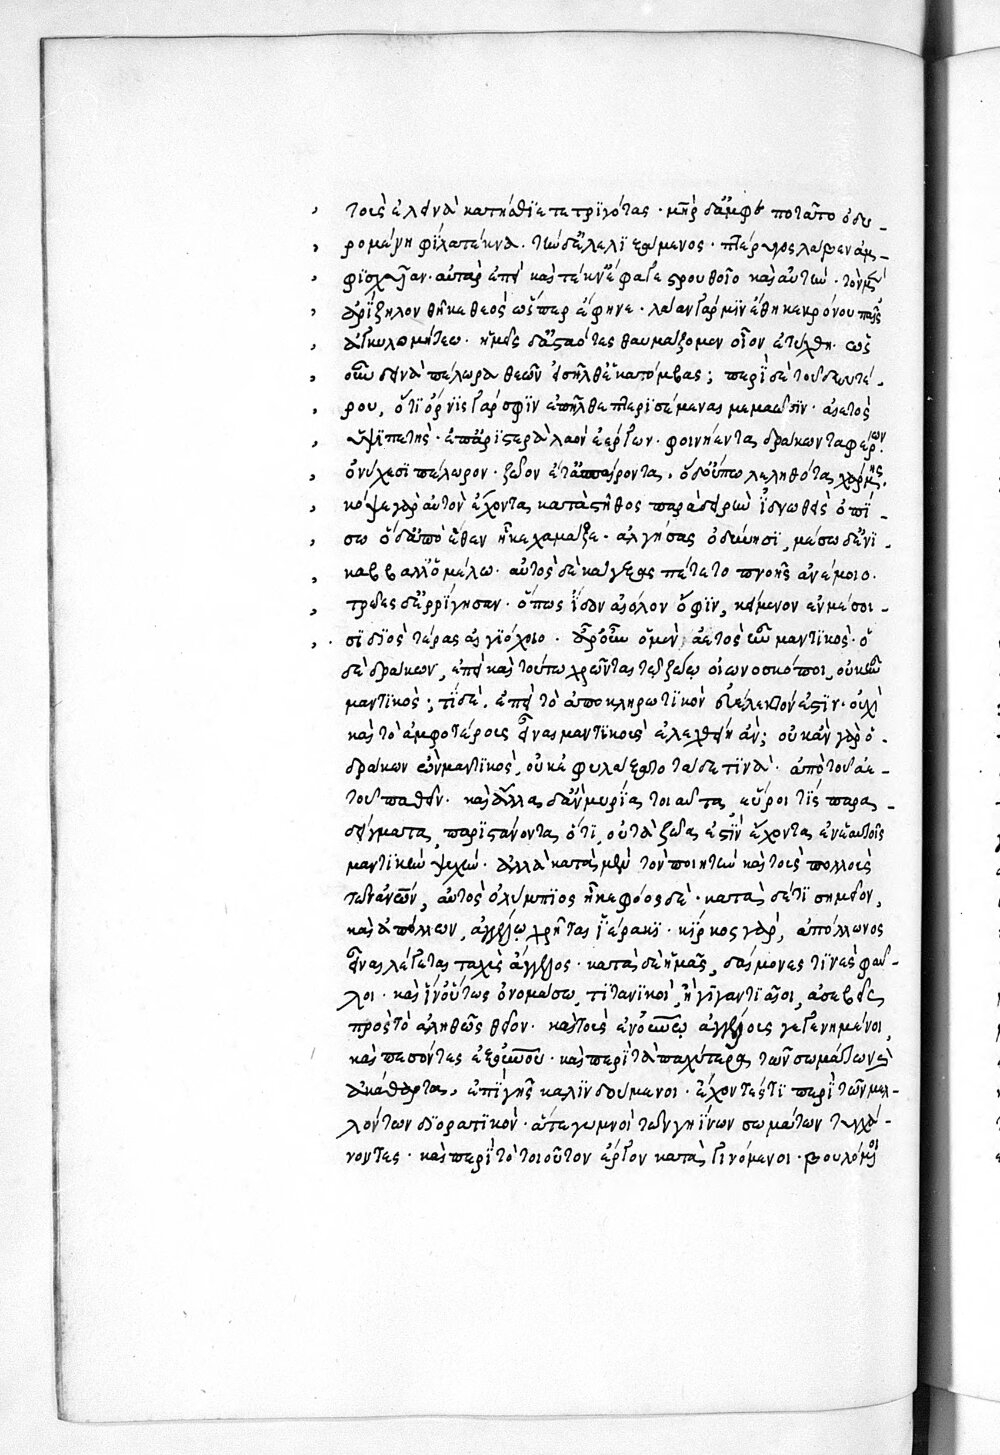 τοὺς ἐλεεινὰ κατήσθϊε τετρϊγότας · μήτηρ δ' ἀμφεποτᾶτο ὀδυ-
ρομένη φΐλα τέκνα · τὴν δ' ἐλελϊξάμενος · πτέρυγος λάβεν ἀμ-
φϊαχυῖαν · αὐτὰρ ἐπεὶ κατὰ τέκν' ἔφαγε στρουθοῖο καὶ αὐτήν · τὸν μὲν
ἀρΐζηλον θῆκε θεὸς ὥσπερ ἔφηνε · λᾶαν γάρ μϊν ἔθηκε κρόνου παῖς
ἀγκυλομήτεω · ἡμεῖς δ' ἑσταότες θαυμάζομεν οἷον ἐτύχθη · ὡς
οὖν δεινὰ πέλωρα θεῶν εἰσῆλθ' ἑκατόμβας ; περὶ δὲ τοῦ δευτέ-
ρου, ὅτϊ ὄρνϊς γάρ σφϊν ἐπῆλθε περϊσέμεναι μεμαῶσϊν · αἰετὸς
ὑψϊπέτης · ἐπ' ἀρϊστερὰ λαὸν ἐέργων · φοινήεντα δράκοντα φέρων
ὀνύχεσϊ πέλωρον · ζωὸν ἔτ' ἀσπαίροντα · ὁ δ' οὔπω λελήθότα χάρμης ·
κόψε γὰρ αὐτὸν ἔχοντα κατὰ στῆθος παρὰ δειρὴν ἰδνωθεὶς ὀπΐ-
σω ὁ δ' ἀπὸ ἕθεν ἧκε χαμᾶζε · ἀλγήσας ὀδύνησϊ, μέσω δ' ἐνϊ
καββαλλ' ὁμΐλω · αὐτὸς δὲ κλάγξας πέτετο πνοιῆς ἀνέμοιο ·
τρῶες δ' ἐρρΐγησαν · ὅπως ἴδον αἰόλον ὄφϊν, κείμενον ἐν μέσοι-
σϊ δϊὸς τέρας αἰγϊόχοιο · ἆρ' οὖν ὁ μὲν ἀετὸς ἦν μαντϊκός · ὁ
δὲ δράκων, ἐπεὶ καὶ τούτω χρῶνται τῶ ζώω οἱ οἰωνοσκόποι, οὐκ ἦν
μαντϊκός ; τΐ δέ · ἐπεὶ τὸ ἀποκληρωτϊκὸν εὐέλεγκτόν ἐστϊν · οὐχϊ
καὶ τὸ ἀμφοτέροις εἶναι μαντϊκοὺς ἐλεγχθείη ἄν ; οὐκ ἂν γὰρ ὁ
δράκων ὢν μαντϊκὸς, οὐκ ἐφυλάξατο τάδε τϊνὰ · ἀπὸ τοῦ ἀε-
τοῦ παθεῖν · καὶ ἄλλα δ' ἂν μυρΐα τοιαῦτα εὕροι τϊς παρα-
δείγματα, παρϊστάνοντα ὅτϊ, οὐ τὰ ζῶα ἐστὶν ἔχοντα ἐν ἑαυτοῖς
μαντϊκὴν ψυχήν · ἀλλὰ κατὰ μὲν τὸν ποιητὴν καὶ τοὺς πολλοὺς
τῶν ἀνθρώπων, αὐτὸς ὀλύμπϊος ἧκε φόως δέ · κατὰ δέ τϊ σημεῖον,
καὶ ἀπόλλων, ἀγγέλω χρῆται ἱέρακϊ · κΐρκος γὰρ, ἀπόλλωνος
εἶναι λέγεται ταχὺς ἄγγελος · κατὰ δὲ ἡμᾶς, δαίμονές τϊνες φαῦ-
λοι · καὶ ἵν' οὕτως ὀνομάσω, τϊτανϊκοὶ, ἢ γϊγάντϊαῖοι, ἀσεβεῖς
πρὸς τὸ ἀληθῶς θεῖον · καὶ τοὺς ἐν οὐρανῷ ἀγγέλους γεγενημένοι,
καὶ πεσόντες ἐξ οὐρανοῦ · καὶ περὶ τὰ παχύτερα τῶν σωμάτων καὶ
ἀκάθαρτα, ἐπὶ γῆς καλϊνδούμενοι · ἔχοντές τϊ περὶ τῶν μελ-
λόντων δϊορατϊκὸν · ἅτε γυμνοὶ τῶν γηΐνων σωμάτων τυγχά-
νοντες · καὶ περὶ τὸ τοιοῦτον ἔργον καταγϊνόμενοι · βουλόμενοι